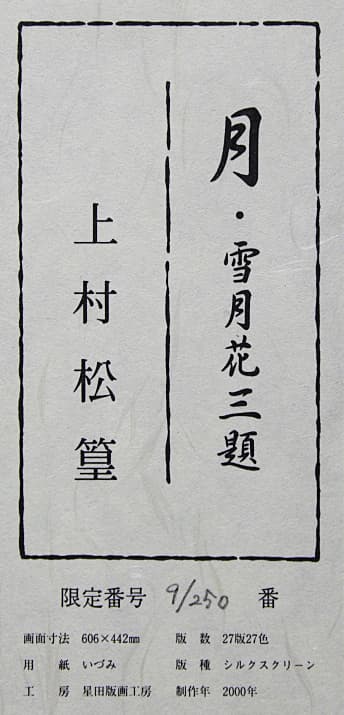 月・雪月花三題
上村松篁
限定番号 9/250 番
画面寸法 606×442㎜ 版数 27版27色
用紙 いづみ 版種 シルクスクリーン
工房 星田版画工房 制作年 2000年